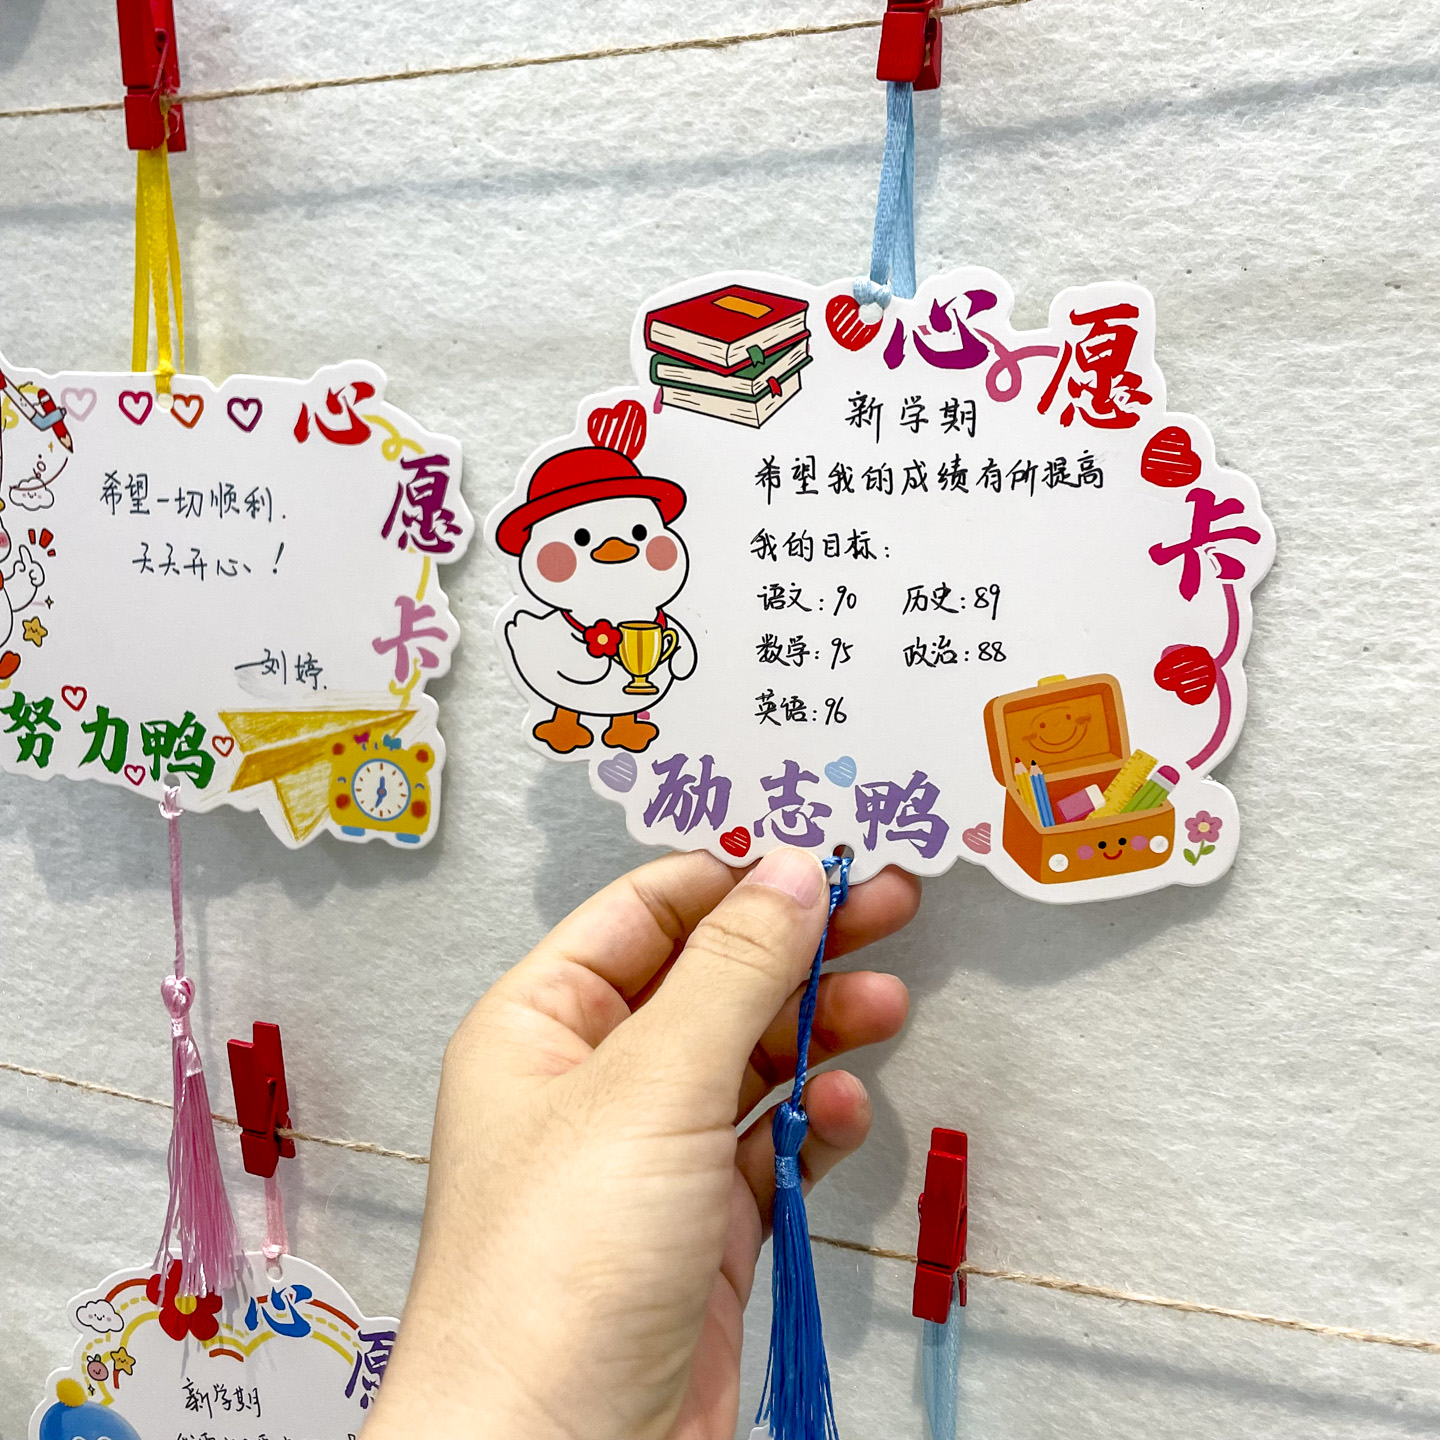 心愿卡
希望一切顺利.
天天开心、!
刘婷.
努力鸭
心愿卡
新学期
希望我的成绩有所提高
我的目标:
语文:90 历史:89
数学:95 政治:88
英语:96
励志鸭
心愿
新学期